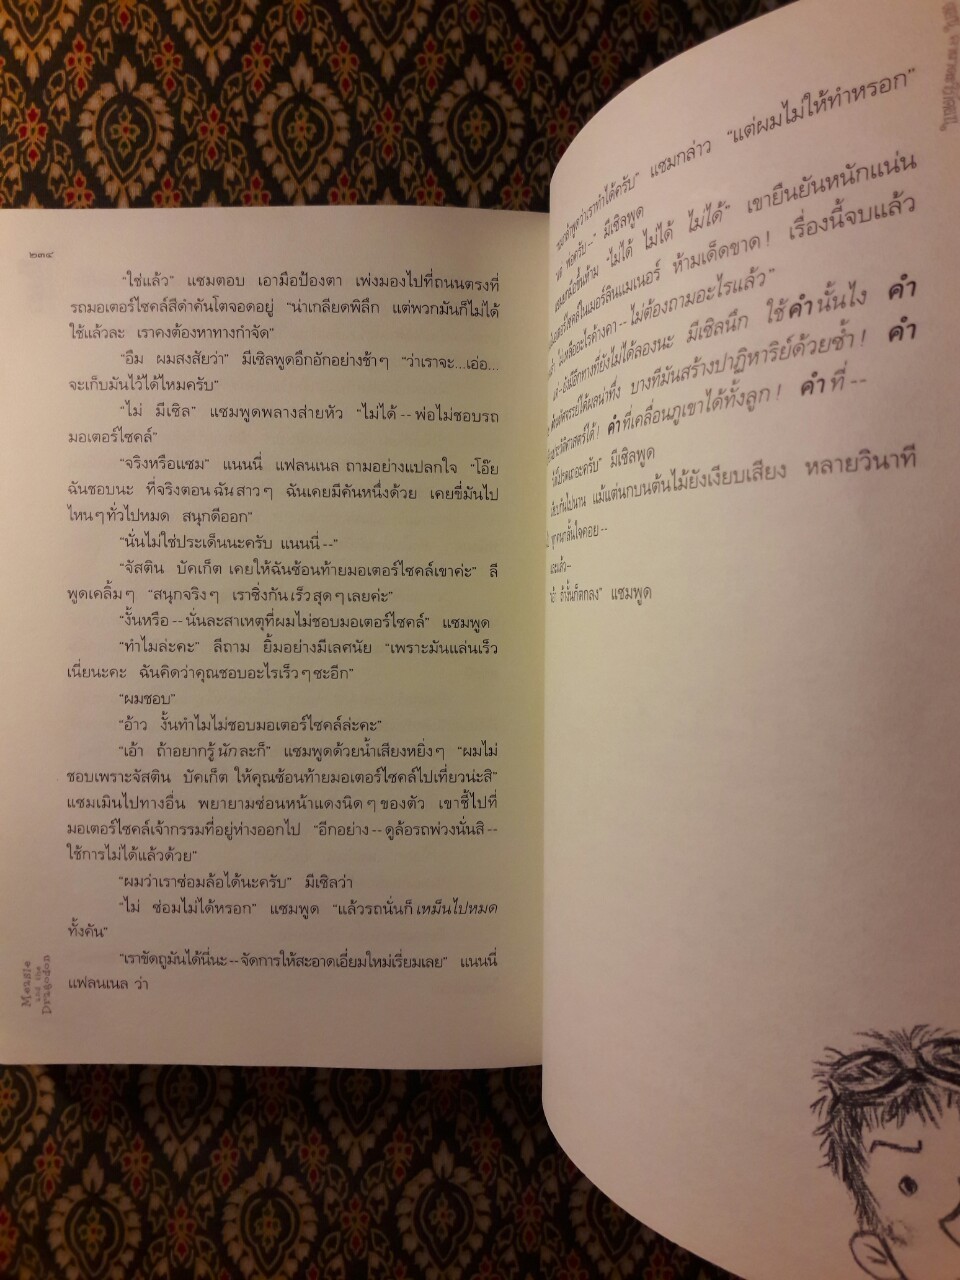 ๒๓๔
“ใช่แล้ว” แซมตอบ เอามือป้องตา เพ่งมองไปที่ถนนตรงที่
รถมอเตอร์ไซคล์สีดำคันโตจอดอยู่ “น่าเกลียดพิลึก แต่พวกมันก็ไม่ได้
ใช้แล้วละ เราคงต้องหาทางกำจัด”
“อืม ผมสงสัยว่า” มีเซิลพูดอึกอักอย่างช้าๆ “ว่าเราจะ...เอ่อ...
จะเก็บมันไว้ได้ไหมครับ”
“ไม่ มีเซิล” แซมพูดพลางส่ายหัว “ไม่ได้ -- พ่อไม่ชอบรถ
มอเตอร์ไซคล์”
“จริงหรือแซม” แนนนี่ แฟลนเนล ถามอย่างแปลกใจ “โอ๊ย
ฉันชอบนะ ที่จริงตอนฉันสาวๆ ฉันเคยมีคันหนึ่งด้วย เคยขี่มันไป
ไหนๆทั่วไปหมด สนุกดีออก”
“นั่นไม่ใช่ประเด็นนะครับ แนนนี่ --”
“จัสติน บัคเก็ต เคยให้ฉันซ้อนท้ายมอเตอร์ไซคล์เขาค่ะ” ลี
พูดเคลิ้มๆ “สนุกจริงๆ เราซิ่งกันเร็วสุดๆเลยค่ะ”
“งั้นหรือ -- นั่นละสาเหตุที่ผมไม่ชอบมอเตอร์ไซคล์” แซมพูด
“ทำไมล่ะคะ” ลีถาม ยิ้มอย่างมีเลศนัย “เพราะมันแล่นเร็ว
เนี่ยนะคะ ฉันคิดว่าคุณชอบอะไรเร็วๆซะอีก”
“ผมชอบ”
“อ้าว งั้นทำไมไม่ชอบมอเตอร์ไซคล์ล่ะคะ”
“เอ้า ถ้าอยากรู้นักละก็” แซมพูดด้วยน้ำเสียงหยิ่งๆ “ผมไม่
ชอบเพราะจัสติน บัคเก็ต ให้คุณซ้อนท้ายมอเตอร์ไซคล์ไปเที่ยวน่ะสิ”
แซมเมินไปทางอื่น พยายามซ่อนหน้าแดงนิดๆของตัว เขาชี้ไปที่
มอเตอร์ไซคล์เจ้ากรรมที่อยู่ห่างออกไป “อีกอย่าง -- ดูล้อรถพ่วงนั่นสิ --
ใช้การไม่ได้แล้วด้วย”
“ผมว่าเราซ่อมล้อได้นะครับ” มีเซิลว่า
“ไม่ ซ่อมไม่ได้หรอก” แซมพูด “แล้วรถนั่นก็เหม็นไปหมด
ทั้งคัน”
“เราขัดถูมันได้นี่นะ -- จัดการให้สะอาดเอี่ยมใหม่เรี่ยมเลย” แนนนี่
แฟลนเนล ว่า
Measle
and the
Dragodon
พูดว่าเราทำได้ครับ” แซมกล่าว “แต่ผมไม่ให้ทำหรอก”
พ่อครับ --” มีเซิลพูด
ขึ้นห้าม “ไม่ได้ ไม่ได้ ไม่ได้” เขายืนยันหนักแน่น
ในเมอร์ลินแมเนอร์ ห้ามเด็ดขาด! เรื่องนี้จบแล้ว
อะไรค้างคา -- ไม่ต้องถามอะไรแล้ว”
ยังมีอีกทางที่ยังไม่ได้ลองนะ มีเซิลนึก ใช้คำนั้นไง คำ
ได้ผลน่าทึ่ง บางทีมันสร้างปาฏิหาริย์ด้วยซ้ำ! คำ
ได้! คำที่เคลื่อนภูเขาได้ทั้งลูก! คำที่ --
ได้โปรดเถอะครับ” มีเซิลพูด
กันไปนาน แม้แต่นกบนต้นไม้ยังเงียบเสียง หลายวินาที
ทุกคนกลั้นใจคอย --
แล้ว --
ถ้างั้นก็ตกลง” แซมพูด